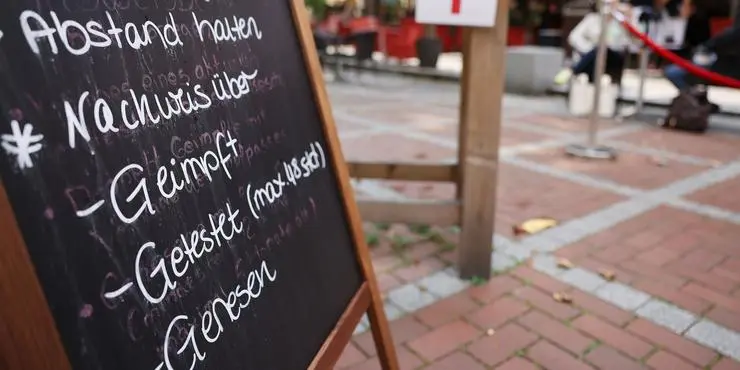 Abstand halten
* Nachweis über
- Geimpft
- Getestet (max. 48 std)
- Genesen